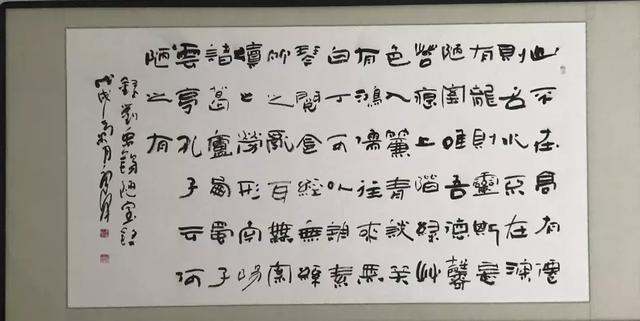 山不在高有僊
則名水不在深
有龍則靈斯是
陋室唯吾德馨
苔痕上階綠艸
色入簾青談笑
有鴻儒往來無
白丁可以調素
琴閱金經無絲
竹之亂耳無案
牘之勞形南陽
諸葛廬西蜀子
雲亭孔子云何
陋之有
錄劉禹錫陋室銘
戊戌年月